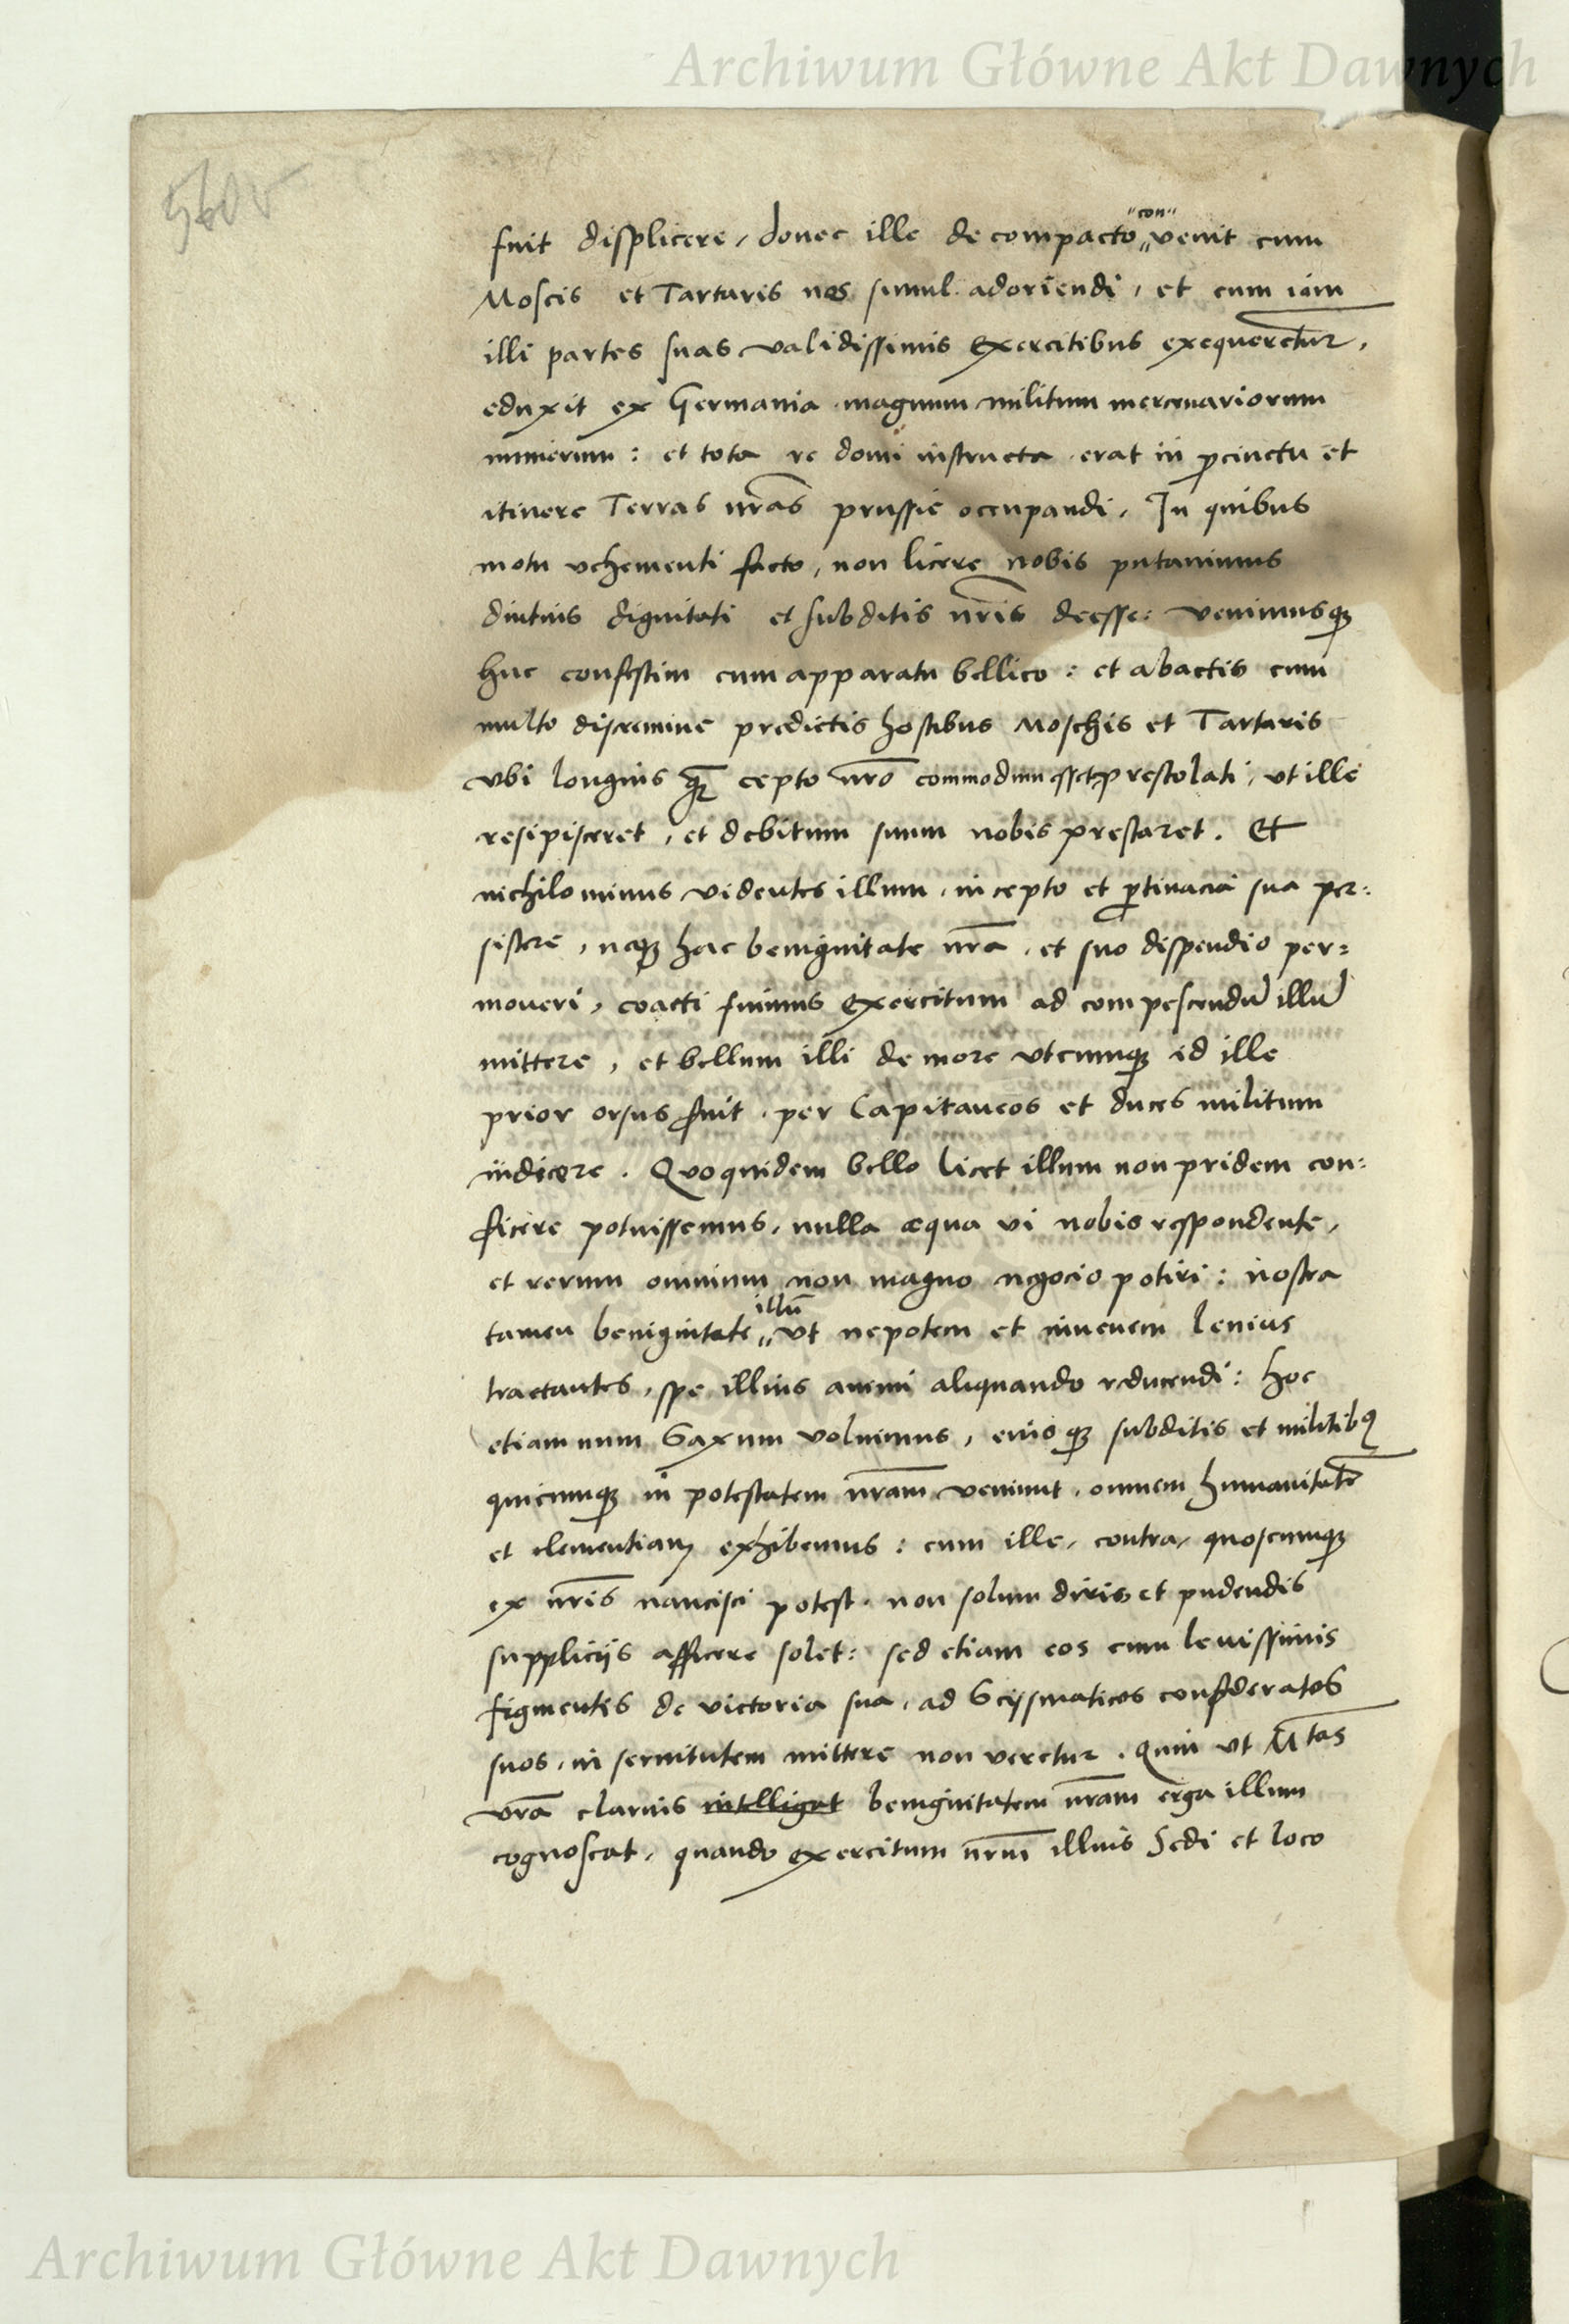 Archiwum Główne Akt Dawnych
560v
fuit displicere, donec ille de compacto "con" venit cum
Moscis et Tartaris nos simul adoriendi, et cum iam
illi partes suas validissimis exercitibus exequerentur,
eduxit ex Germania magnum militum mercenariorum
numerum: et tota re domi instructa erat in pcinctu et
itinere Terras nr̃as prussie occupandi. In quibus
motu vehementi facto, non licere nobis putauimus
diutius dignitati et subditis nr̃is deesse: venimusq3
huc confestim cum apparatu bellico: et abactis cum
multo discrimine predictis hostibus Moschis et Tartaris
vbi longius q̃ cepto nr̃o commodum esset prestolati, vt ille
resipisceret, et debitum suum nobis prestaret. Et
nichilominus videntes illum, in cepto et ptinacia sua per:
sistere, neq3 hac benignitate nr̃a, et suo dispendio per=
moueri, coacti fuimus exercitum ad compescendũ illũ
mittere, et bellum illi de more vtcumq3 id ille
prior orsus fuit, per Capitaneos et duces militum
indicere. Quoquidem bello licet illum non pridem con:
ficere potuissemus, nulla aequa vi nobis respondente,
et rerum omnium non magno negocio potiri: nostra
illũ
tamen benignitate " vt nepotem et iuuenem lenius
tractantes, spe illius animi aliquando reducendi: hoc
etiam num Saxum voluimus, euisq3 subditis et militib9
quicumq3 in potestatem nr̃am veniunt, omnem humanitatẽ
et clementiam exhibemus: cum ille, contra, quoscumq3
ex nr̃is nancisci potest, non solum diris et pudendis
suppliciis afficere solet: sed etiam eos cum leuissimis
figmentis de victoria sua, ad Scysmaticos confederatos
suos, in seruitutem mittere non veretur. Quin vt Mtas
vr̃a clarius intelligat benignitatem nr̃am erga illum
cognoscat, quando exercitum nr̃m illius Sedi et loco
Archiwum Główne Akt Dawnych